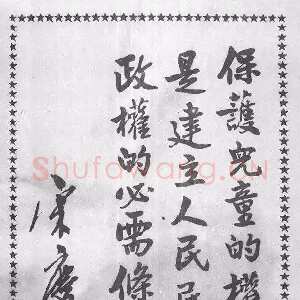 保護兒童的權
是建立人民民
政權的必需條
宋慶
Shufawang.CN